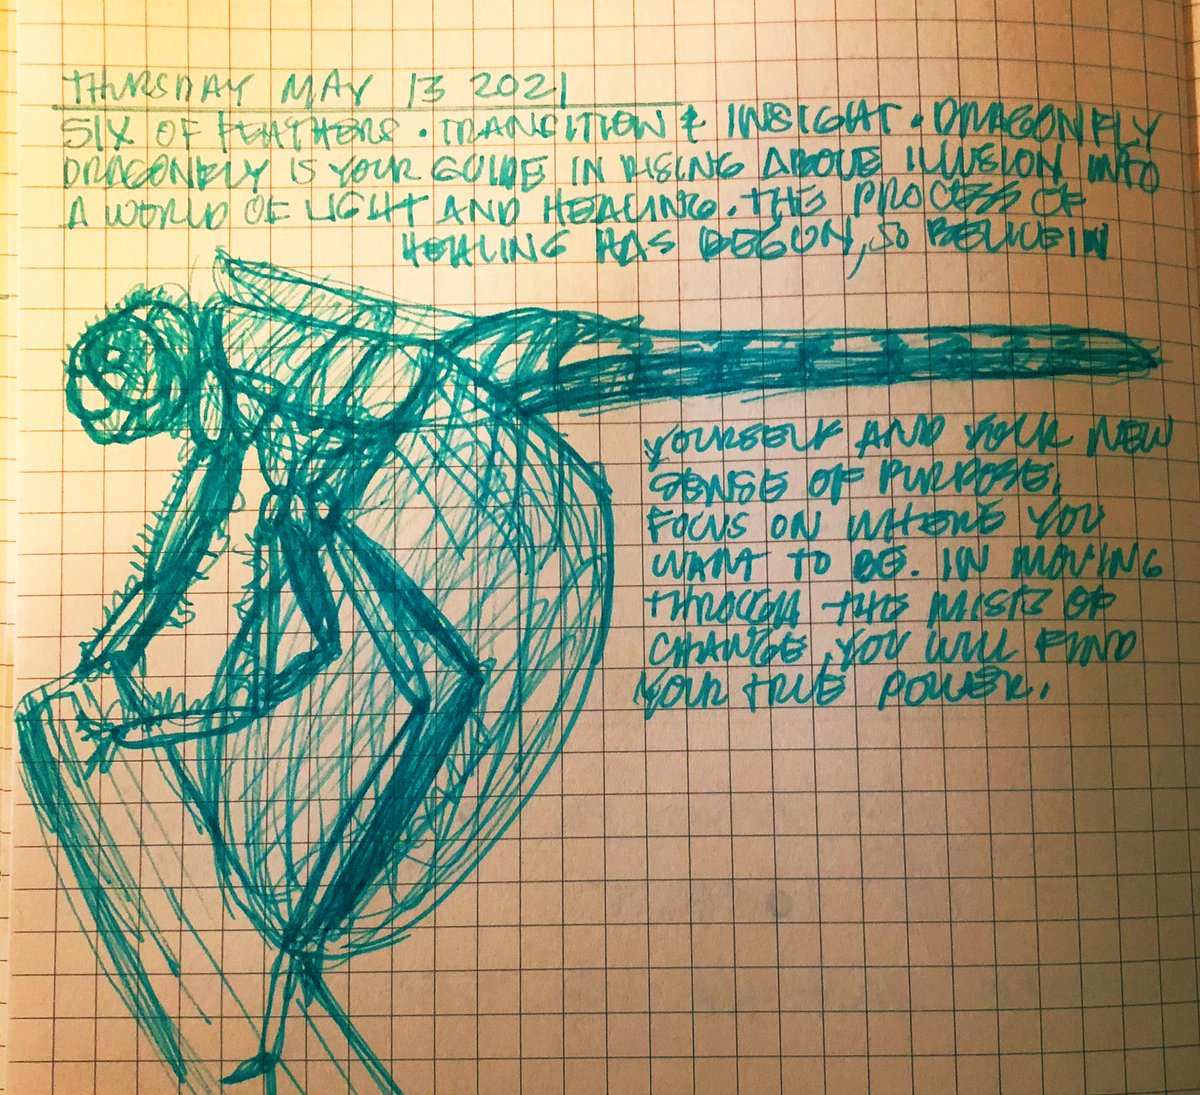 THURSDAY MAY 13 2021
SIX OF FEATHERS • TRANSITION & INSIGHT • DRAGONFLY
DRAGONFLY IS YOUR GUIDE IN RISING ABOVE ILLUSION INTO
A WORLD OF LIGHT AND HEALING. THE PROCESS OF
HEALING HAS BEGUN, SO BELIEVE IN
YOURSELF AND YOUR NEW
SENSE OF PURPOSE.
FOCUS ON WHERE YOU
WANT TO BE. IN MOVING
THROUGH THE MISTS OF
CHANGE, YOU WILL FIND
YOUR TRUE POWER.